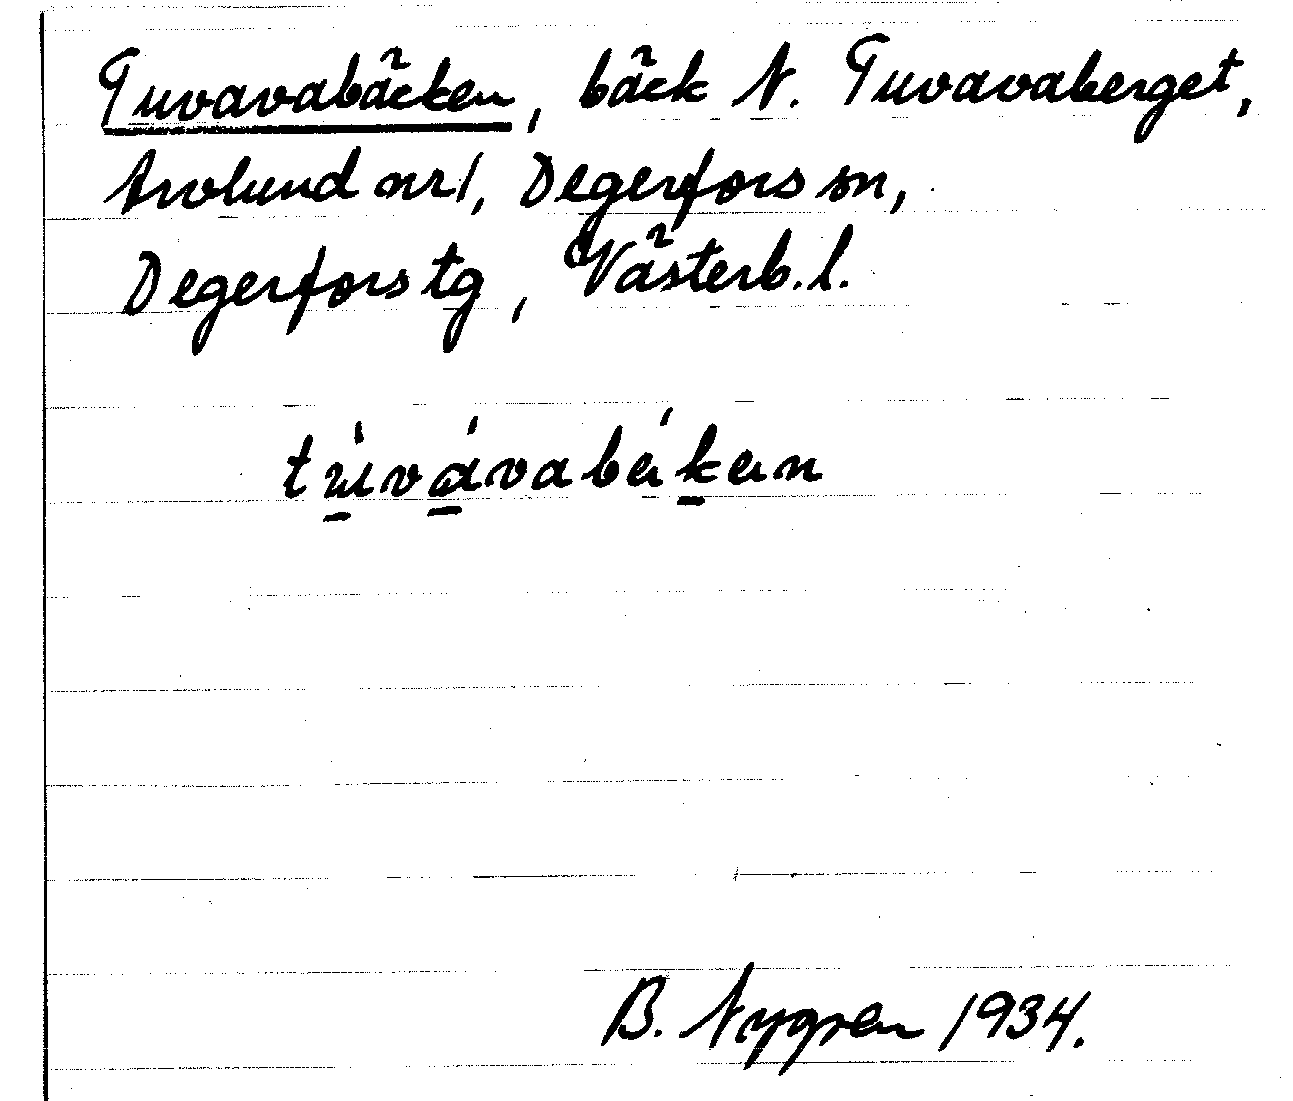 Tuvavabäcken, bäck N. Tuvavaberget,
Avolund nr 1, Degerfors sn,
Degerfors tg, Västerb. l.
túvávabákan
B. Nygren 1934.